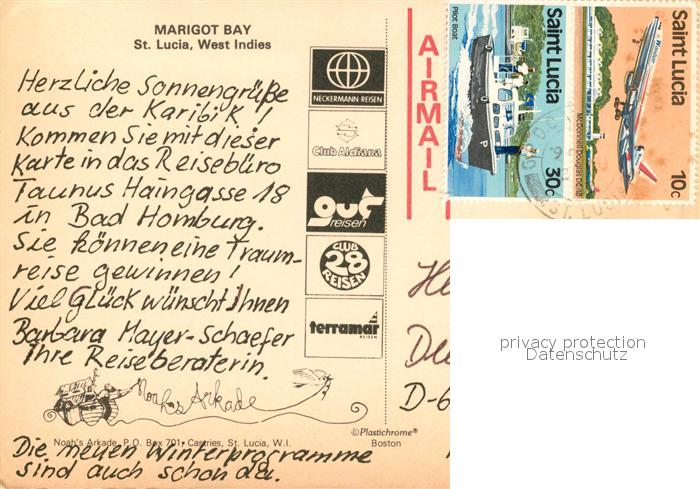 MARIGOT BAY
St. Lucia, West Indies
Herzliche Sonnengrüße
aus der Karibik!
Kommen Sie mit dieser
Karte in das Reisebüro
Taunus Haingasse 18
in Bad Homburg.
Sie können eine Traum-
reise gewinnen!
Viel Glück wünscht Ihnen
Barbara Mayer-Schaefer
Ihre Reiseberaterin.
Noah's Arkade
Noah's Arkade, P.O. Box 701, Castries, St. Lucia, W.I.
Die neuen Winterprogramme
sind auch schon da.
NECKERMANN REISEN
Club Aldiana
guT
reisen
CLUB
28
REISEN
terramar
REISEN
©Plastichrome®
Boston
AIRMAIL
Pilot Boat
Saint Lucia
30c
McDonnell Douglas DC-10
Saint Lucia
10c
D-6
privacy protection
Datenschutz